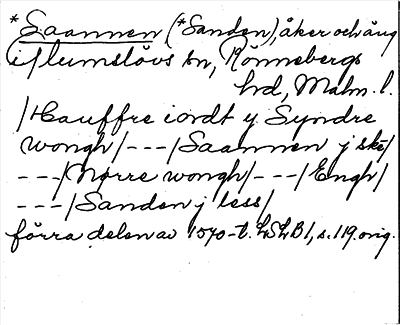 *Saannen (*Sanden), åker och äng
i Glumslövs sn, Rönnebergs
hd, Malm. l.
/Hauffre iordt y Syndre
wongh/---/Saannen j ske/
---/Nørre wongh/---/Engh/
---/Sanden j less/
förra delen av 1570-t. LSLB 1, s. 119 orig.